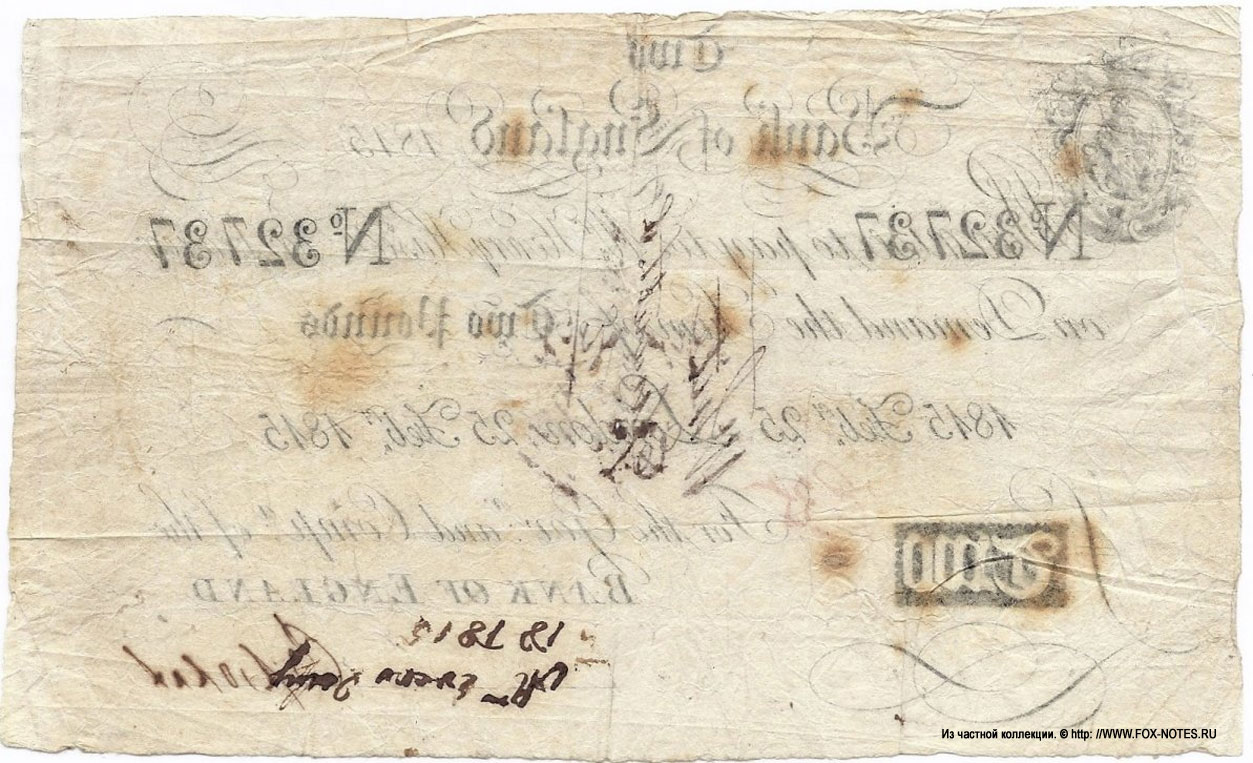 Two
Bank of England 1815
Nº 32737 to pay to Mr. Henry Hase Nº 32737
on Demand the Sum of Two Pounds
1815 Feb. 25 London 25 Feb. 1815
For the Gov.r and Comp.a of the
BANK OF ENGLAND
Two
Из частной коллекции. © http: //WWW.FOX-NOTES.РУ